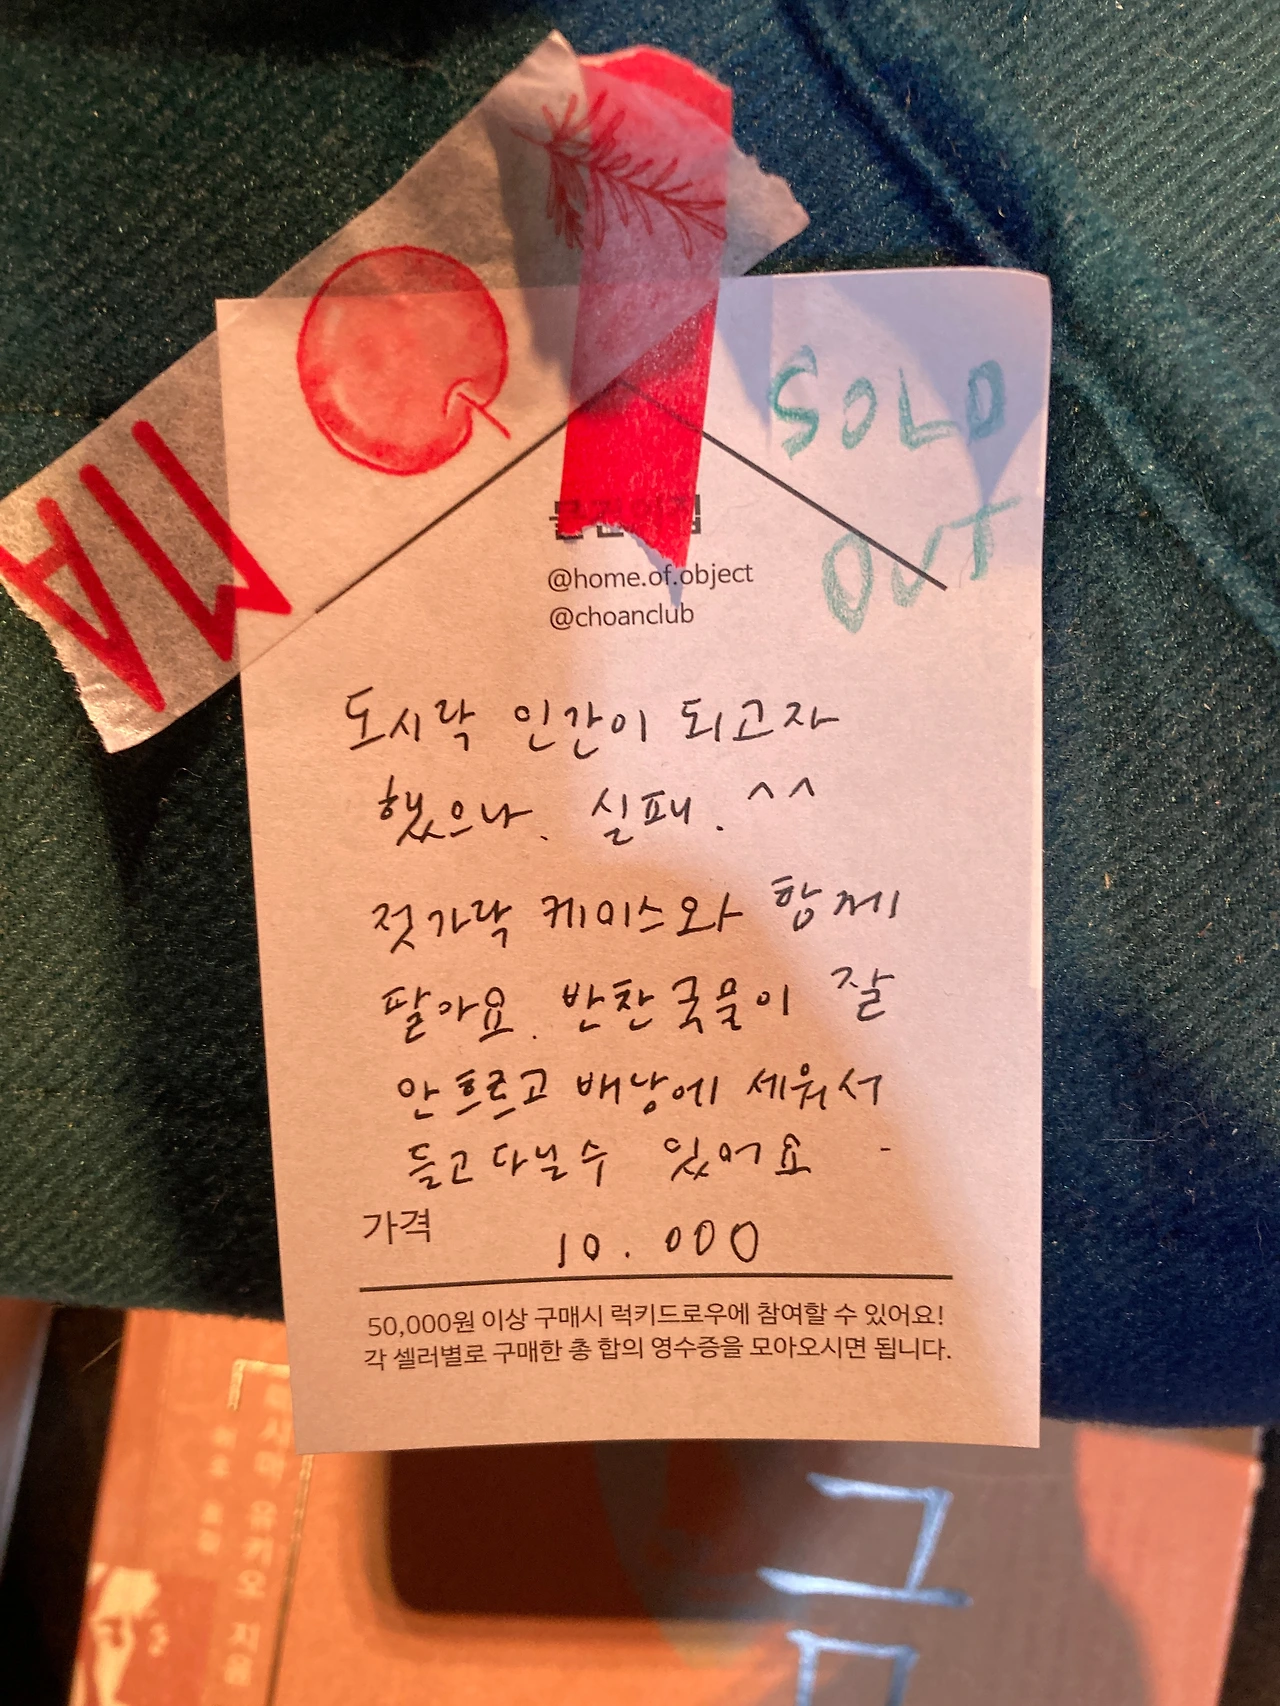 MA
SOLD
OUT
물건의집
@home.of.object
@choanclub
도시락 인간이 되고자
했으나. 실패. ^^
젓가락 케이스와 함께
팔아요. 반찬국물이 잘
안흐르고 배낭에 세워서
들고다닐수 있어요 -
가격 10.000
50,000원 이상 구매시 럭키드로우에 참여할 수 있어요!
각 셀러별로 구매한 총 합의 영수증을 모아오시면 됩니다.
유키오 지음